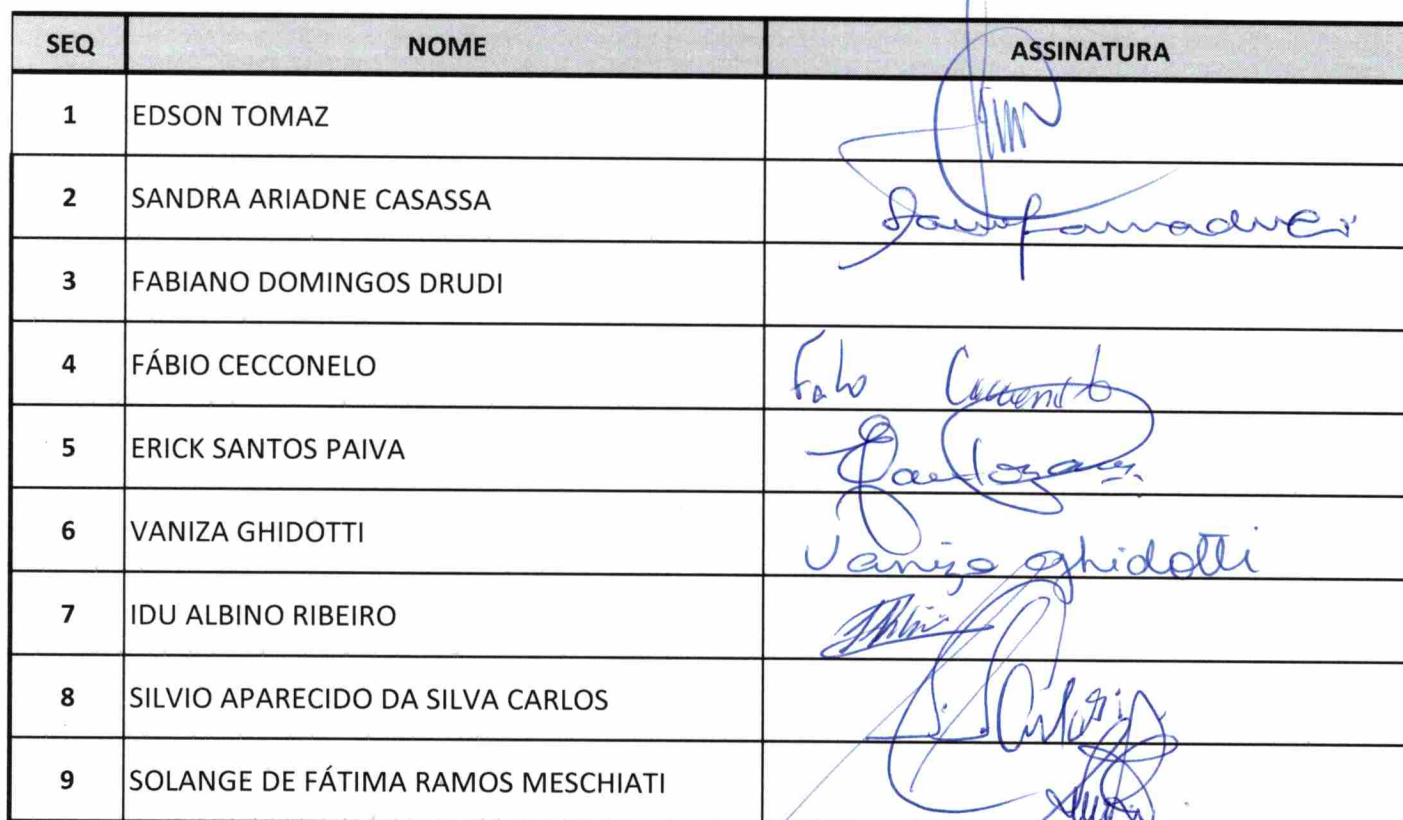 SEQ NOME ASSINATURA
1 EDSON TOMAZ
2 SANDRA ARIADNE CASASSA
3 FABIANO DOMINGOS DRUDI
4 FÁBIO CECCONELO
5 ERICK SANTOS PAIVA
6 VANIZA GHIDOTTI Vaniza Ghidotti
7 IDU ALBINO RIBEIRO
8 SILVIO APARECIDO DA SILVA CARLOS
9 SOLANGE DE FÁTIMA RAMOS MESCHIATI